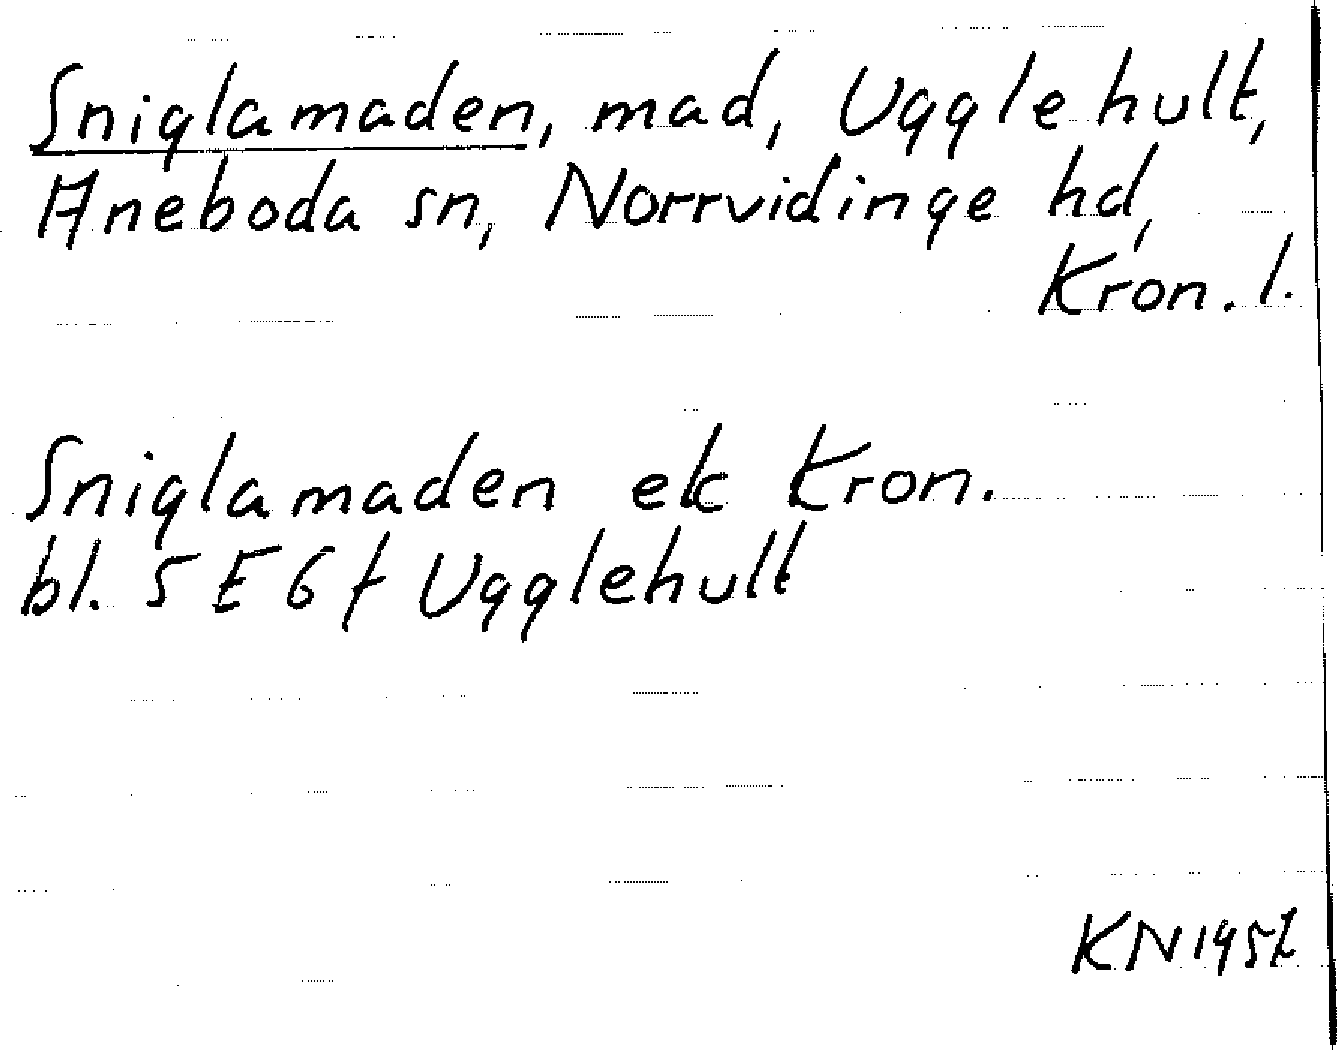 Sniglamaden, mad, Ugglehult,
Aneboda sn, Norrvidinge hd,
Kron. l.
Sniglamaden ek Kron.
bl. 5 E 6 f Ugglehult
KN 1957